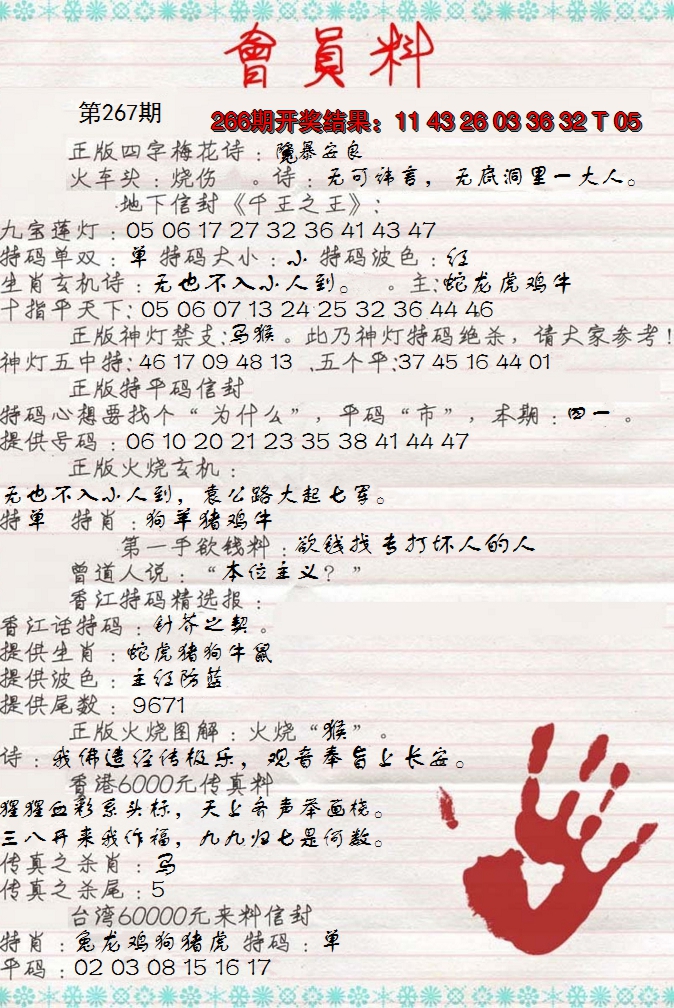 會員料
第267期
266期开奖结果：11 43 26 03 36 32 T 05
正版四字梅花诗：隆暴安良
火车头：烧伤 。诗：无可讳言，无底洞里一大人。
地下信封《千王之王》：
九宝莲灯：05 06 17 27 32 36 41 43 47
特码单双：单 特码大小：小 特码波色：红
生肖玄机诗：无也不入小人到。 。主：蛇龙虎鸡牛
十指平天下：05 06 07 13 24 25 32 36 44 46
正版神灯禁支：马猴。此乃神灯特码绝杀，请大家参考！
神灯五中特：46 17 09 48 13 、五个平：37 45 16 44 01
正版特平码信封
特码心想要找个“为什么”，平码“市”，本期：四一。
提供号码：06 10 20 21 23 35 38 41 44 47
正版火烧玄机：
无也不入小人到，袁公路大起七军。
特单 特肖：狗羊猪鸡牛
第一手欲钱料：欲钱找专打坏人的人
曾道人说：“本位主义？”
香江特码精选报：
香江话特码：针芥之契。
提供生肖：蛇虎猪狗牛鼠
提供波色：主红防蓝
提供尾数：9671
正版火烧图解：火烧“猴”。
诗：我佛造经传极乐，观音奉旨上长安。
香港6000元传真料
猩猩血彩系头标，天上齐声举画桡。
三八开来我作福，九九归七是何数。
传真之杀肖：马
传真之杀尾：5
台湾60000元来料信封
特肖：兔龙鸡狗猪虎 特码：单
平码：02 03 08 15 16 17